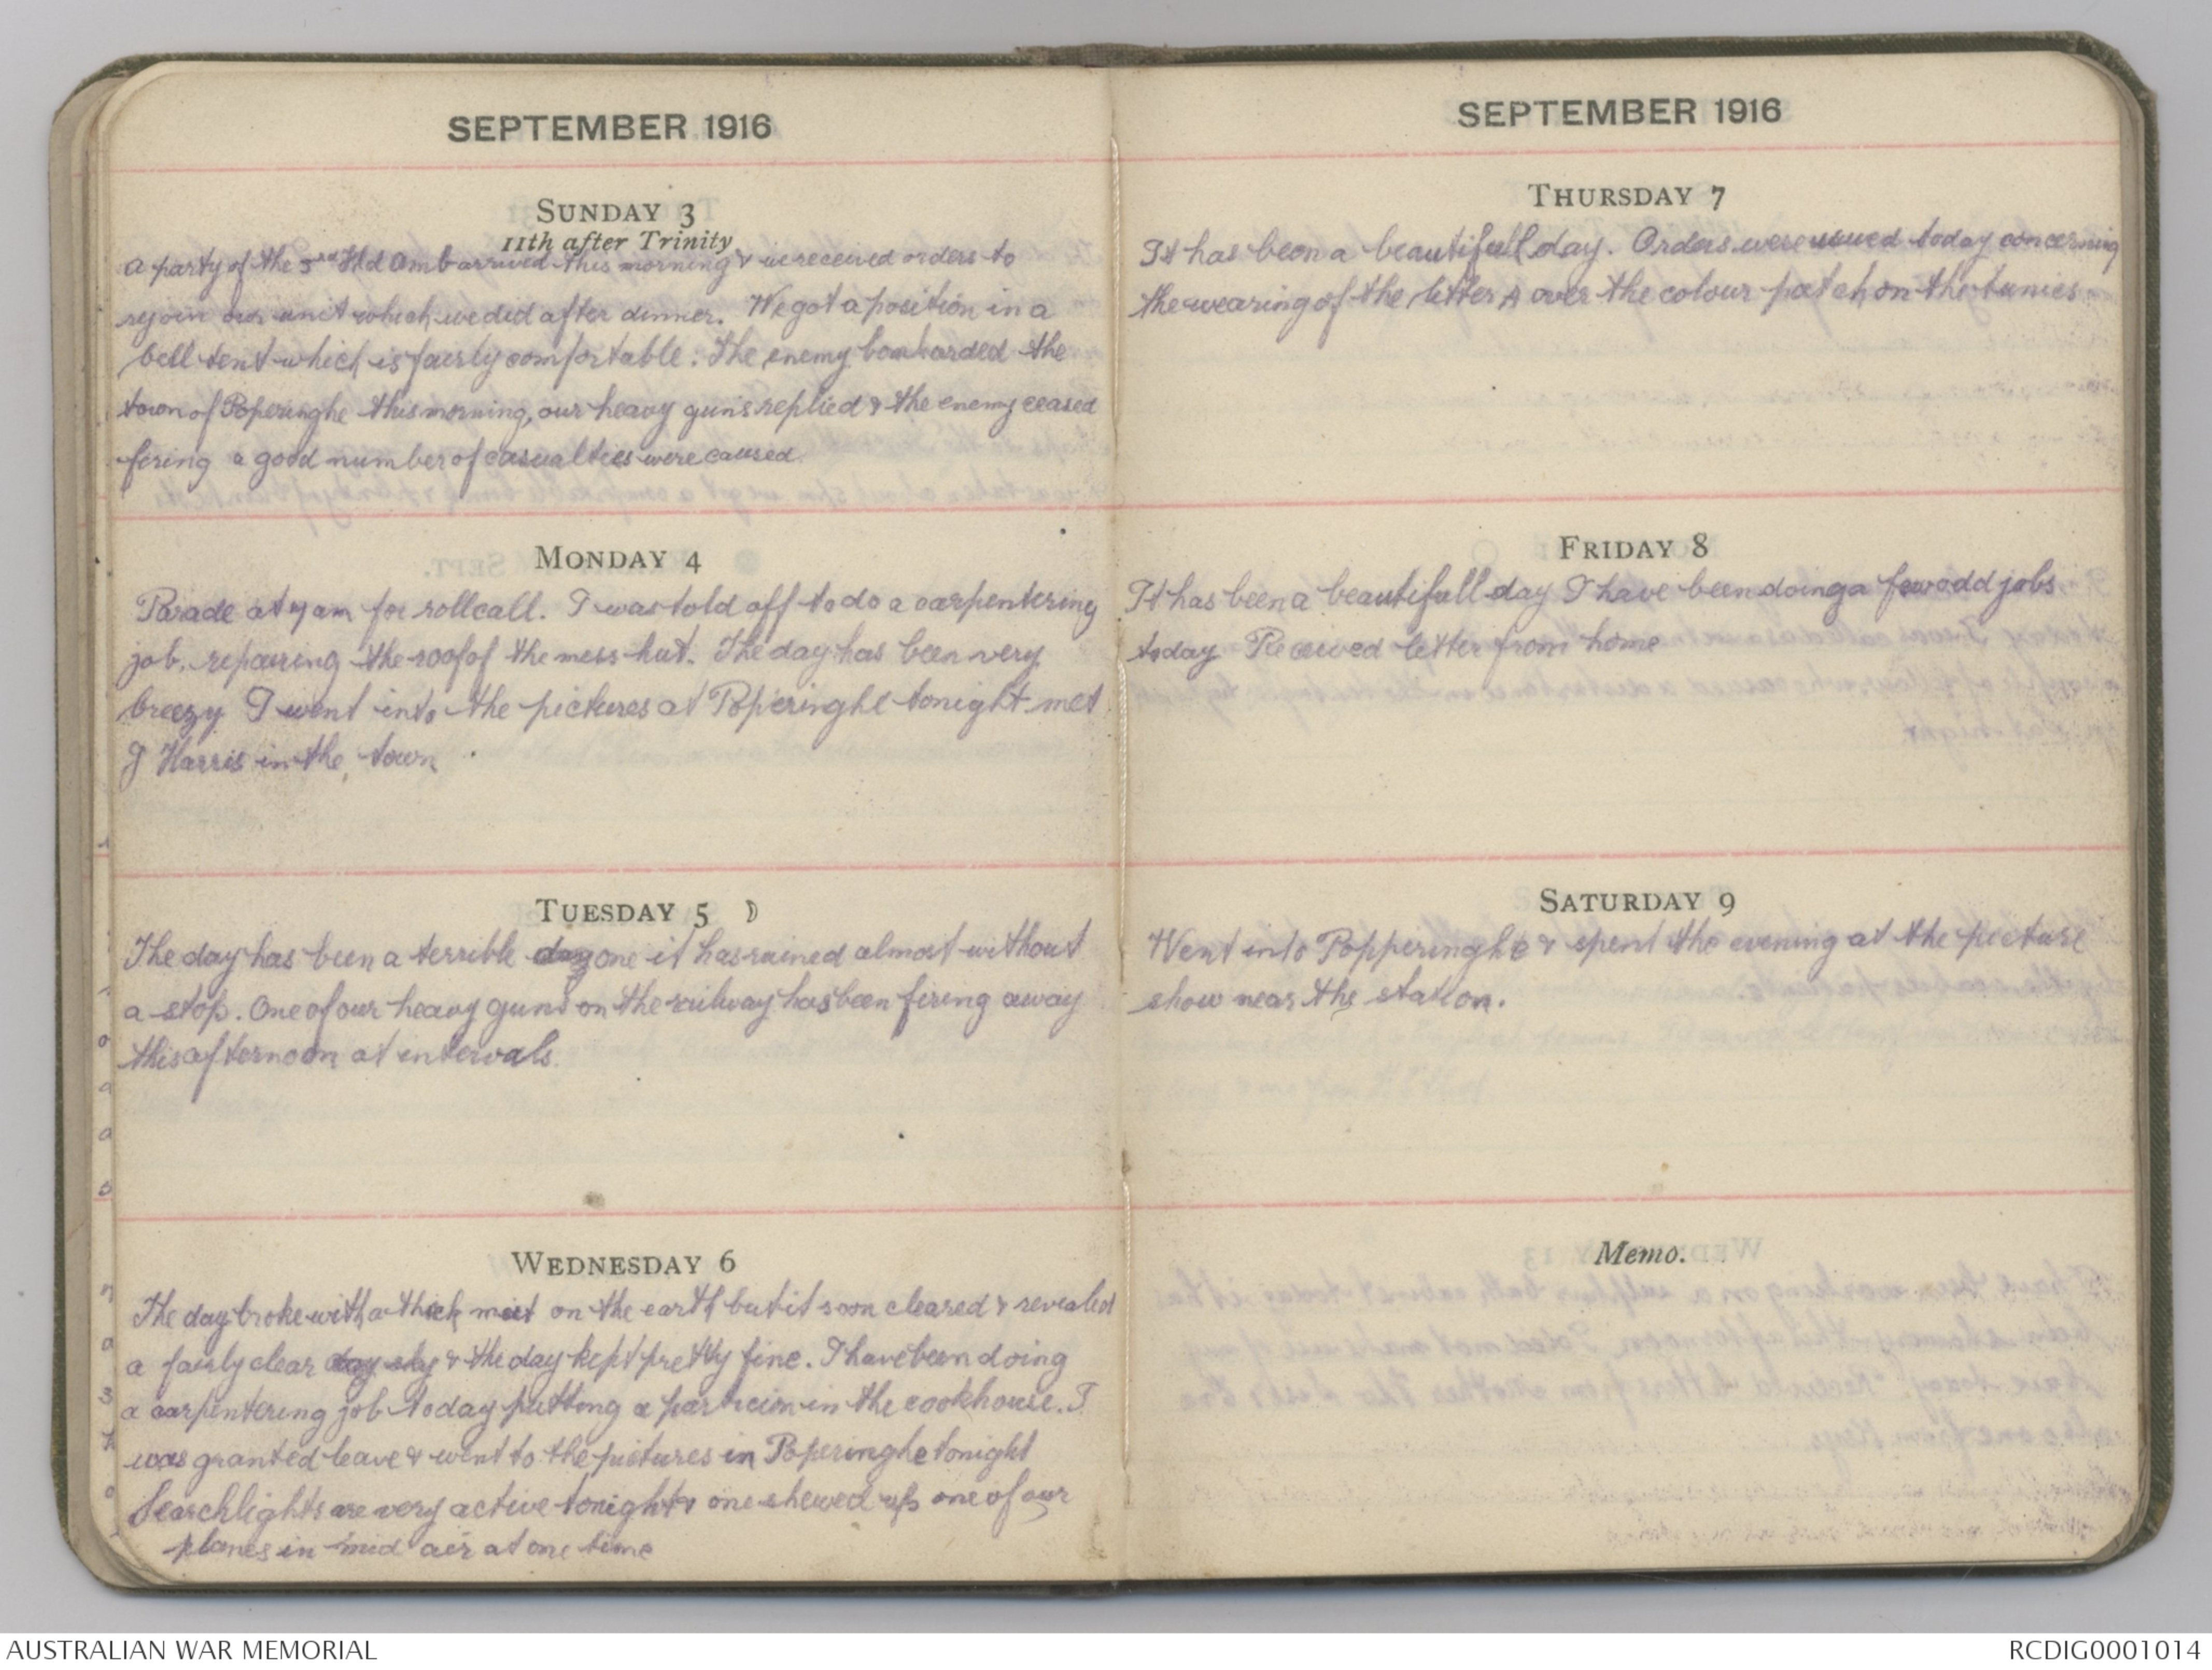 SEPTEMBER 1916
SUNDAY 3
11th after Trinity
a party of the 3rd Fld Amb arrived this morning & we received orders to
rejoin our unit which we did after dinner. We got a position in a
bell tent which is fairly comfortable. The enemy bombarded the
town of Poperinghe this morning, our heavy guns replied & the enemy ceased
firing a good number of casualties were caused.
MONDAY 4
Parade at 7 am for rollcall. I was told off to do a carpentering
job, repairing the roof of the mess hut. The day has been very
breezy. I went into the pictures at Poperinghe tonight met
J Harris in the town
TUESDAY 5
The day has been a terrible day one it has rained almost without
a stop. One of our heavy guns on the railway has been firing away
this afternoon at intervals.
WEDNESDAY 6
The day broke with a thick mist on the earth but it soon cleared & revealed
a fairly clear day sky & the day kept pretty fine. I have been doing
a carpentering job today puttong a particion in the cookhouse. I
was granted leave & went to the pictures in Poperinghe tonight
Searchlights are very active tonight & one shewed up one of our
planes in mid air at one time
SEPTEMBER 1916
THURSDAY 7
It has been a beautifull day. Orders were issued today concerning
the wearing of the letter A over the colour patch on the tunics
FRIDAY 8
It has been a beautifull day I have been doing a few odd jobs
today Received letter from home
SATURDAY 9
Went into Popperinghe & spent the evening at the picture
show near the station.
Memo.
AUSTRALIAN WAR MEMORIAL
RCDIG0001014